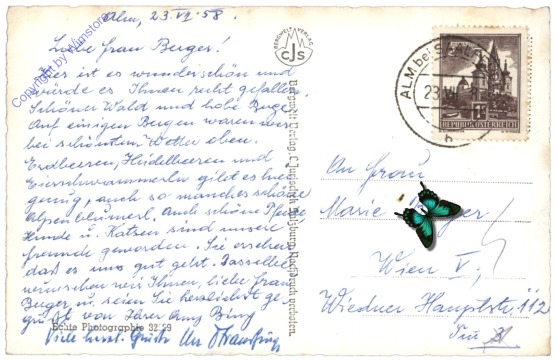 Alm, 23.VII.58.
Liebe Frau Berger!
Hier ist es wunderschön und
würde es Ihnen recht gefallen.
Schöner Wald und hohe Berge.
Auf einigen Bergen waren wir
bei schönstem Wetter oben.
Erdbeeren, Heidelbeeren und
Eierschwammerln gibt es hier
genug, auch so manches schöne
Alpenblümerl. Auch schön Pferde
Hunde u. Katzen sind unsere
Freunde geworden. Sie ersehen
daß es uns gut geht. Dasselbe
wünschen wir Ihnen, liebe Frau
Berger u. seien Sie herzlichst ge-
grüßt von Ihrer Amy
Viele herzl. Grüße
Echte Photographie 32 59
Copyright by Wimstore
BERGWELT VERLAG
CJS
Bergwelt Verlag C. Jurischek, Salzburg. Nachdruck verboten.
ALM bei
23.VII
b
REPUBLIK ÖSTERREICH
An Frau
Marie
Wien V.,
Wiedner Hauptstr. 112